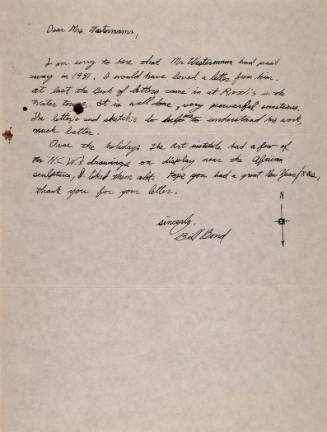 Dear Mrs. Westermann,
I am sorry to hear that Mr. Westermann had passed
away in 1981. I would have loved a letter from him.
At last the Book of letters came in at Rizzoli's in the
Water tower. It is well done, very powerful sometimes.
The letters and sketches do help to understand his work,
much better.
Over the holidays the art institute had a few of
the H.C.W. drawings on display near the African
sculpture, I liked them alot. Hope you had a great New Years/Xmas,
thank you for your letter.
sincerely,
Bill Bond
N